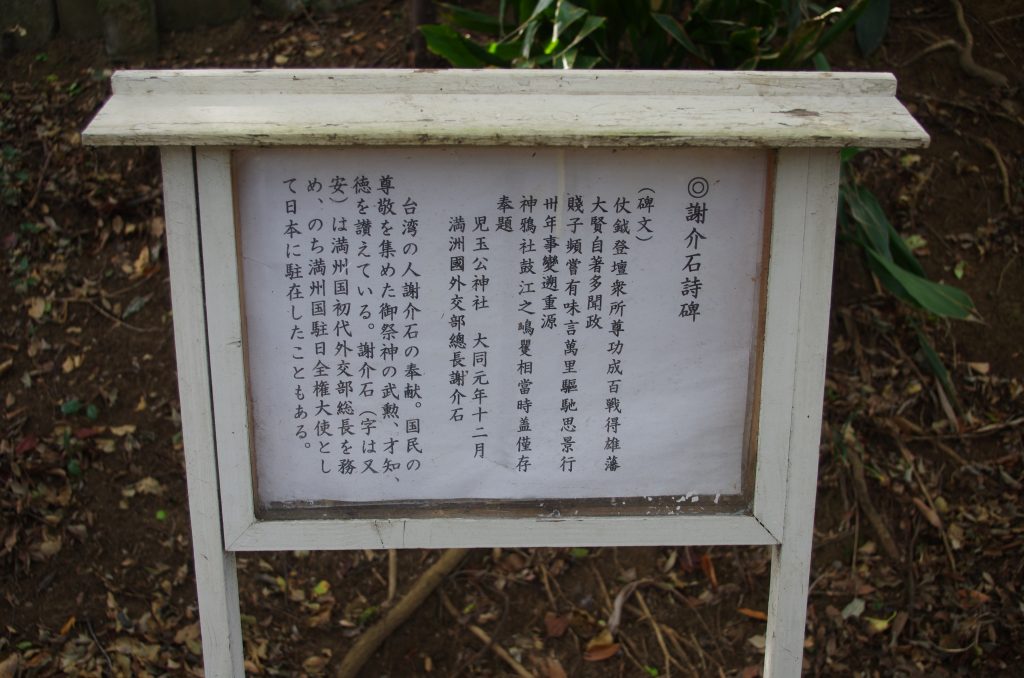 ◎謝介石詩碑
(碑文)
仗鉞登壇衆所尊功成百戦得雄藩
大賢自著多聞政
賤子頻嘗有味言萬里驅馳思景行
卅年事變遡重源
神鴉社鼓江之嶋矍相當時盖僅存
奉題
児玉公神社 大同元年十二月
満洲國外交部總長謝介石
台湾の人謝介石の奉献。国民の
尊敬を集めた御祭神の武勲、才知、
徳を讃えている。謝介石(字は又
安)は満州国初代外交部総長を務
め、のち満州国駐日全権大使とし
て日本に駐在したこともある。